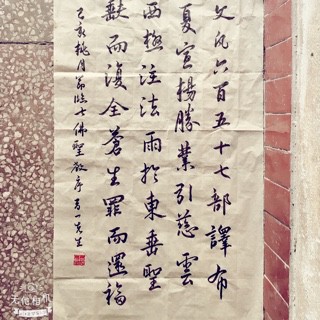 文凡六百五十七部譯布
夏宣揚勝業引慈雲
西極注法雨於東垂聖
缺而復全蒼生罪而還福
己亥桃月節臨七佛聖教序
无他相机